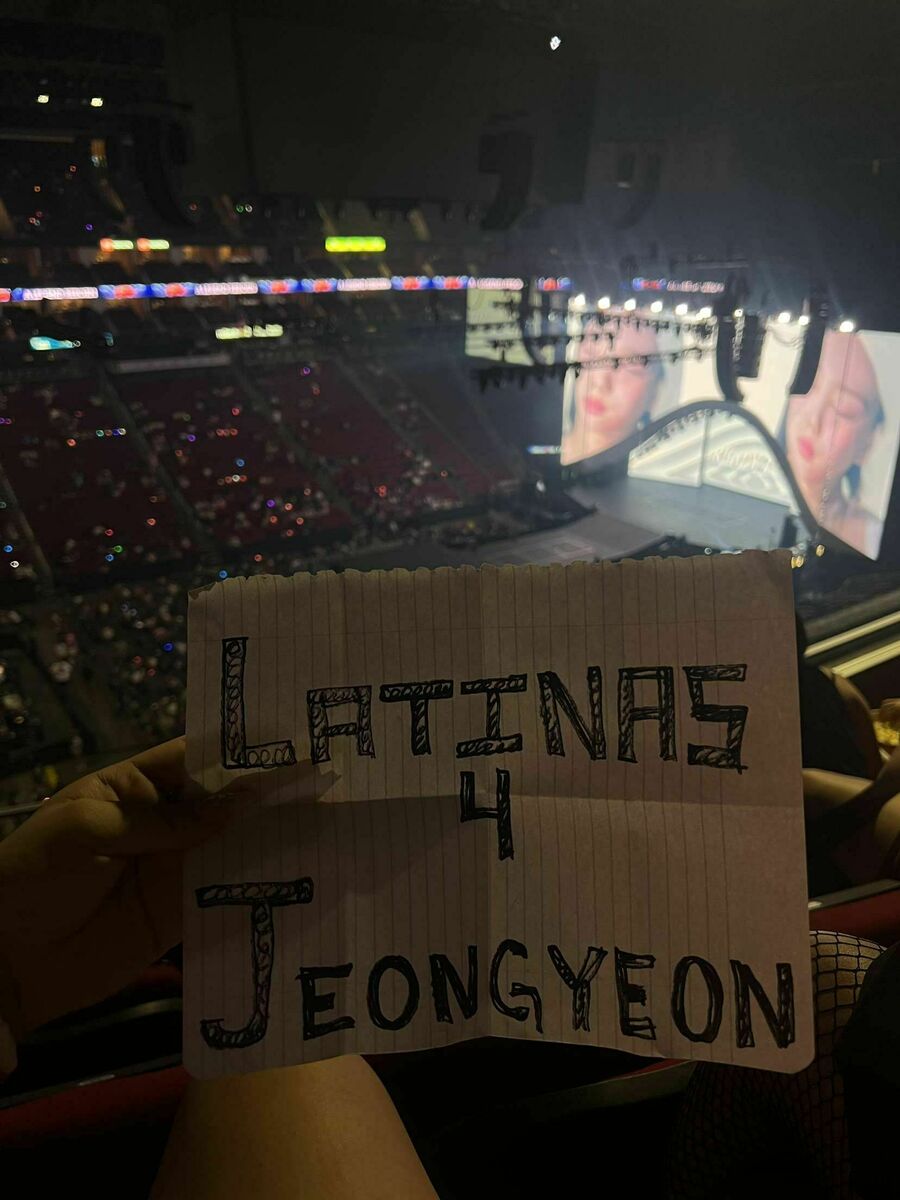 LATINAS
4
JEONGYEON